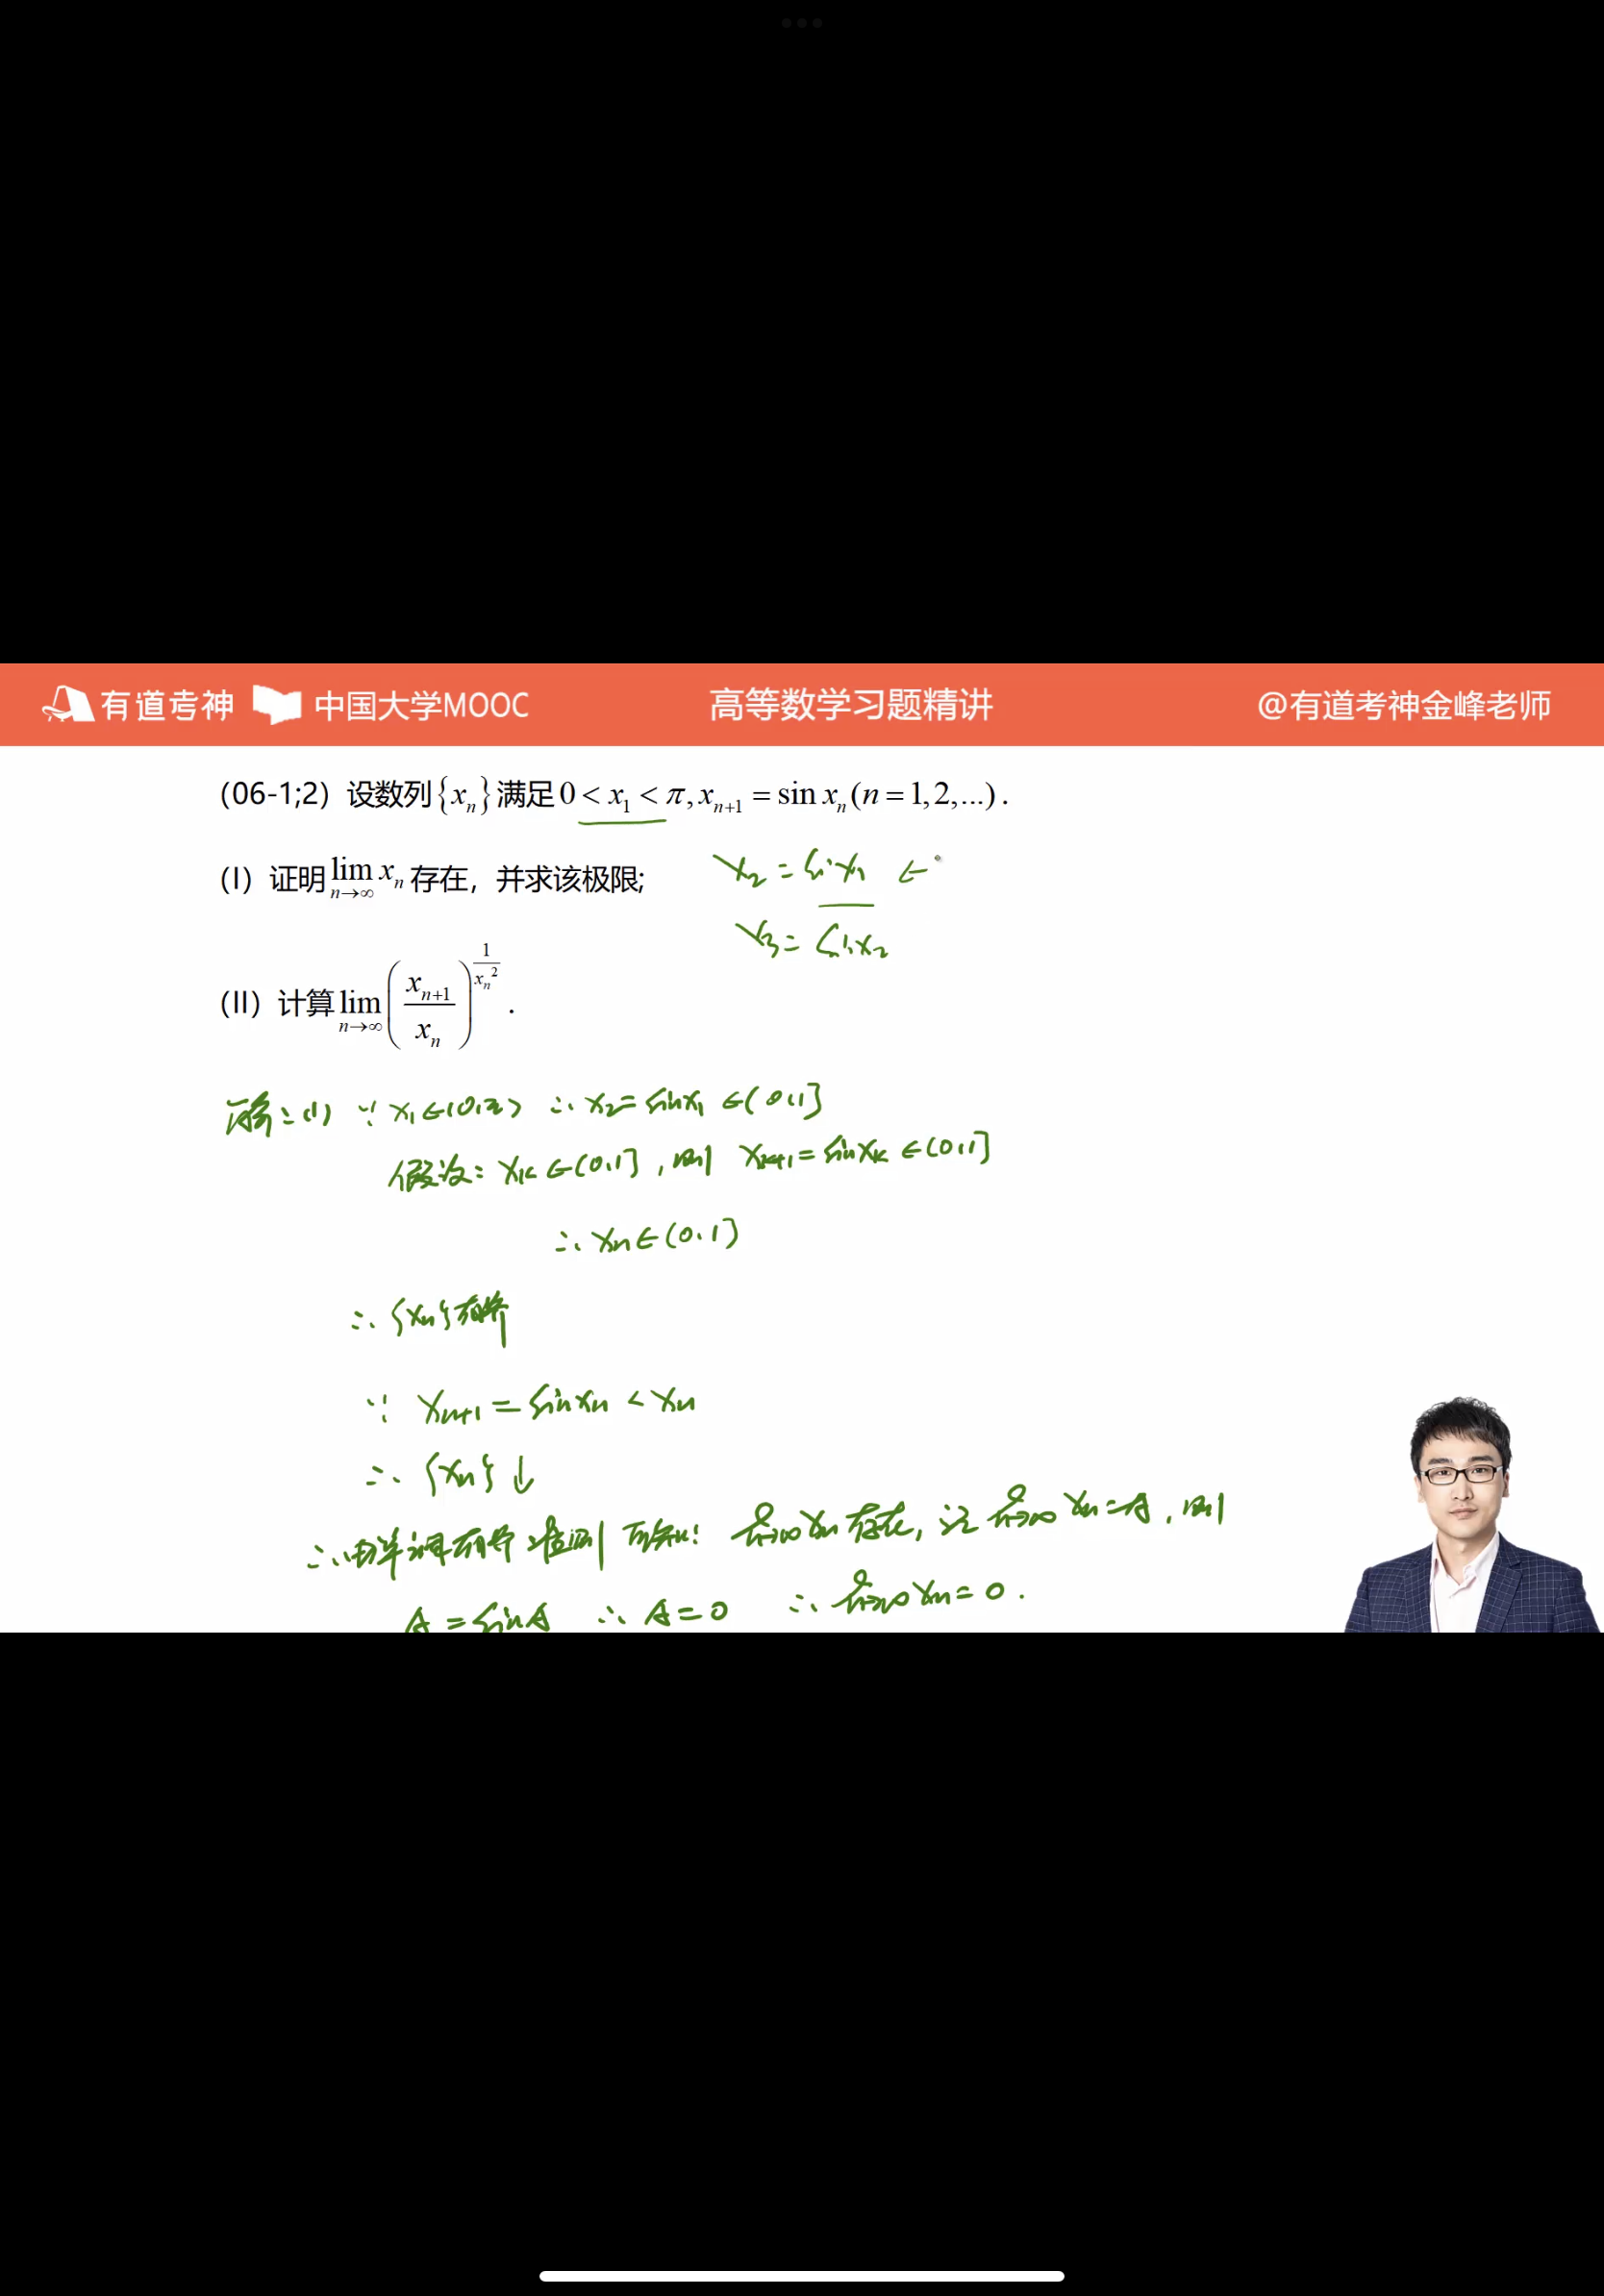 有道考神 中国大学MOOC 高等数学习题精讲 @有道考神金峰老师
(06-1;2) 设数列{xₙ}满足0 < x₁ < π, xₙ₊₁ = sin xₙ (n = 1, 2, ...) .
(I) 证明 lim n→∞ xₙ 存在，并求该极限;
x₂ = sin x₁ ←
x₃ = sin x₂
(II) 计算 lim n→∞ (xₙ₊₁/xₙ)^(1/xₙ²) .
解：(1) ∵ x₁ ∈ (0,π) ∴ x₂ = sin x₁ ∈ (0,1]
假设：xₖ ∈ (0,1]，则 xₖ₊₁ = sin xₖ ∈ (0,1]
∴ xₙ ∈ (0,1]
∴ {xₙ}有界
∵ xₙ₊₁ = sin xₙ < xₙ
∴ {xₙ} ↓
∴ 由单调有界准则可知: lim n→∞ xₙ 存在, 记 lim n→∞ xₙ = A, 则
A = sin A ∴ A = 0 ∴ lim n→∞ xₙ = 0 .